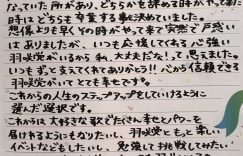 なっていた所があり、どちらかを辞める時がやってきた
時はどちらも卒業する事に決めていました。
想像よりも早くその時がやって来て突然で戸惑い
はありましたが、いつも応援してくれる心強い
羽咲党がいるから私、大丈夫だな！って思えました。
いつもずっと支えてくれてありがとう!!心から信頼できる
羽咲党がいてとても幸せです。
これからの人生のステップアップをしていけるように
選んだ選択です。
これからは大好きな歌でたくさん幸せとパワーを
届けれるようにもなりたいし、羽咲党ともっと楽しい
イベントなどもしたいし、勉強して挑戦してみたい